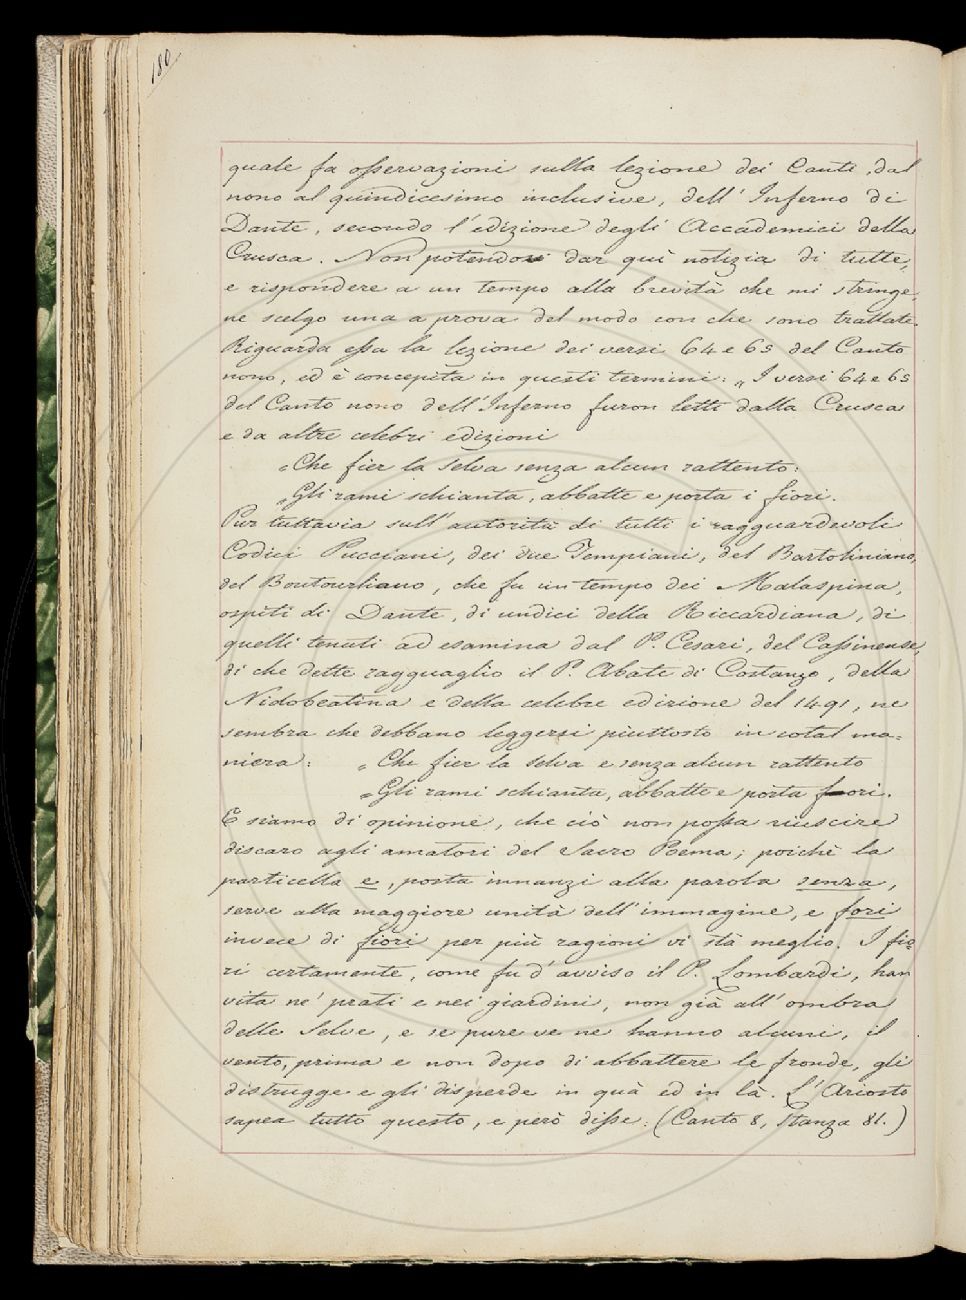 180
quale fa osservazioni sulla lezione dei Canti, dal
nono al quindicesimo inclusive, dell'Inferno di
Dante, secondo l'edizione degli Accademici della
Crusca. Non potendo dar quì notizia di tutte,
e rispondere a un tempo alla brevità che mi stringe,
ne scelgo una a prova del modo con che sono trattate.
Riguarda essa la lezione dei versi 64 e 65 del Canto
nono, ed è concepita in questi termini: „I versi 64 e 65
del Canto nono dell'Inferno furon letti dalla Crusca
e da altre celebri edizioni
„Che fier la selva senza alcun rattento:
„Gli rami schianta, abbatte e porta i fiori.
Pur tuttavia sull'autorità di tutti i ragguardevoli
Codici Pucciani, dei due Tempiani, del Bartoliniano,
del Boutourliano, che fu un tempo dei Malaspina,
ospiti di Dante, di undici della Riccardiana, di
quelli tenuti ad esamina dal P. Cesari, del Cassinense,
di che dette ragguaglio il P. Abate di Costanzo, della
Nidobeatina e della celebre edizione del 1491, ne
sembra che debbano leggersi piuttosto in cotal ma=
niera: „Che fier la selva e senza alcun rattento
„Gli rami schianta, abbatte e porta fori.
E siamo di opinione, che ciò non possa riuscire
discaro agli amatori del Sacro Poema; poichè la
particella e, posta innanzi alla parola senza,
serve alla maggiore unità dell'immagine, e fori
invece di fiori per più ragioni vi stà meglio. I fio=
ri certamente, come fu d'avviso il P. Lombardi, han
vita ne' prati e nei giardini, non già all'ombra
delle Selve, e se pure ve ne hanno alcuni, il
vento, prima e non dopo di abbattere le fronde, gli
distrugge e gli disperde in quà ed in là. L'Ariosto
sapea tutto questo, e però disse: (Canto 8, Stanza 81.)